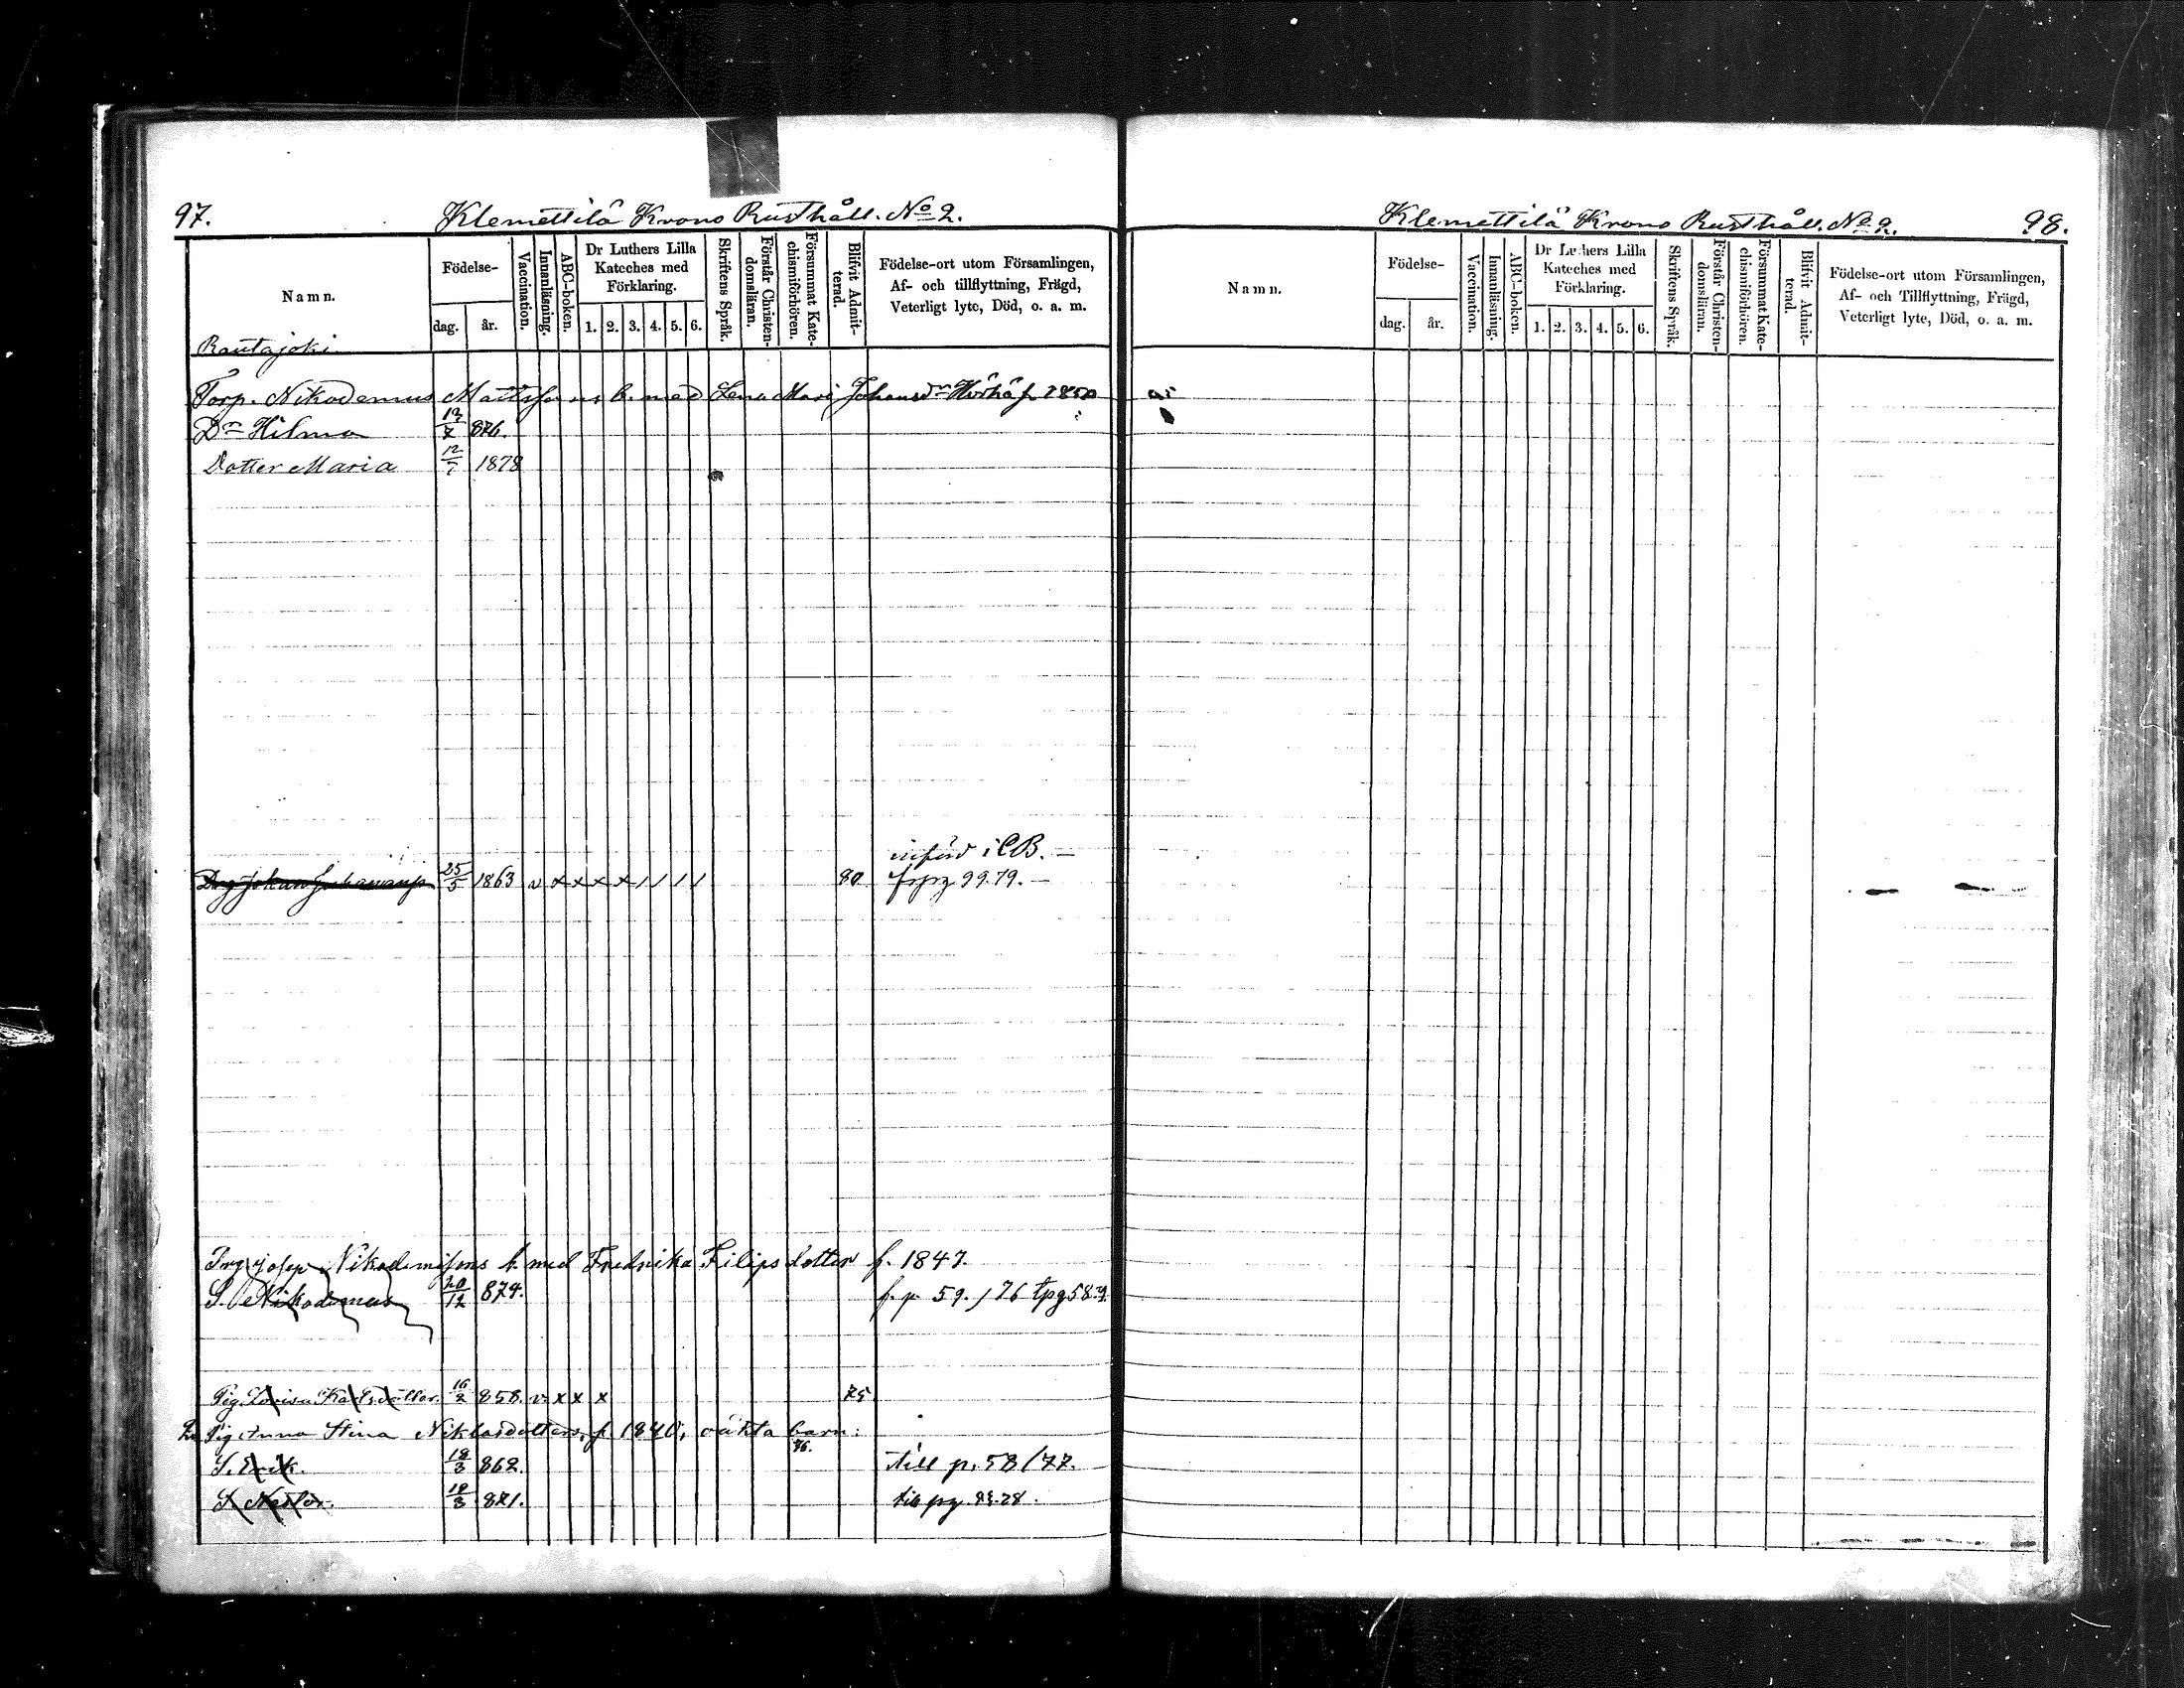 97. Klemettilä Krono Rusthåll. No 2.
Namn. Födelse- dag. år. Vaccination. Innanläsning. ABC-boken. Dr Luthers Lilla Kateches med Förklaring. 1. 2. 3. 4. 5. 6. Skriftens Språk. Förstår Christendomsläran. Försummat Katechismiförhören. Blifvit Admitterad. Födelse-ort utom Församlingen, Af- och tillflyttning, Frägd, Veterligt lyte, Död, o. a. m.
Rautajoki
Torp. Nikodemus Mattssons b. med Lena Mari Johansdr f. 1850
Dr Hilma 13/7 876.
Dotter Maria 12/7 1878
införd i CB.
Drg Johan 25/5 1863 v x x x x / / / / 80 frpg 99.79.
Drg Josep Nikodemissons b. med Fredrika Filipsdotter f. 1847.
S. Nikodemus 20/12 874. f. p. 59. / 76 tpg 58.79.
Pig. Lovisa Karlsdotter. 16/2 858. v. x x x 75
Pig Anna Stina Niklasdotters, f 1840, oäkta barn:
76.
S. Erik. 18/3 862. till p. 58/77.
S. Nestor. 18/3 871. till pg 83.78.
Klemettilä Krono Rusthåll. No 2. 98.
Namn. Födelse- dag. år. Vaccination. Innanläsning. ABC-boken. Dr Luthers Lilla Kateches med Förklaring. 1. 2. 3. 4. 5. 6. Skriftens Språk. Förstår Christendomsläran. Försummat Katechismiförhören. Blifvit Admitterad. Födelse-ort utom Församlingen, Af- och Tillflyttning, Frägd, Veterligt lyte, Död, o. a. m.